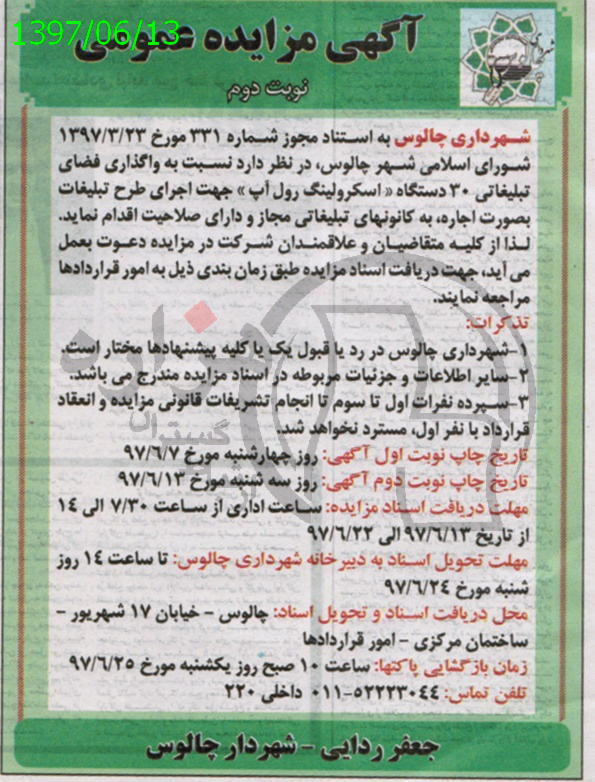 1397/06/13
آگهی مزایده عمومی
نوبت دوم
شهرداری چالوس به استناد مجوز شماره ۳۳۱ مورخ ۱۳۹۷/۳/۲۳
شورای اسلامی شهر چالوس، در نظر دارد نسبت به واگذاری فضای
تبلیغاتی ۳۰ دستگاه «اسکرولینگ رول آپ» جهت اجرای طرح تبلیغات
بصورت اجاره، به کانونهای تبلیغاتی مجاز و دارای صلاحیت اقدام نماید.
لذا از کلیه متقاضیان و علاقمندان شرکت در مزایده دعوت بعمل
می آید، جهت دریافت اسناد مزایده طبق زمان بندی ذیل به امور قراردادها
مراجعه نمایند.
تذکرات:
۱-شهرداری چالوس در رد یا قبول یک یا کلیه پیشنهادها مختار است.
۲-سایر اطلاعات و جزئیات مربوطه در اسناد مزایده مندرج می باشد.
۳-سپرده نفرات اول تا سوم تا انجام تشریفات قانونی مزایده و انعقاد
قرارداد با نفر اول، مسترد نخواهد شد.
تاریخ چاپ نوبت اول آگهی: روز چهارشنبه مورخ ۹۷/۶/۷
تاریخ چاپ نوبت دوم آگهی: روز سه شنبه مورخ ۹۷/۶/۱۳
مهلت دریافت اسناد مزایده: ساعت اداری از ساعت ۷/۳۰ الی ۱۴
از تاریخ ۹۷/۶/۱۳ الی ۹۷/۶/۲۲
مهلت تحویل اسناد به دبیرخانه شهرداری چالوس: تا ساعت ۱۴ روز
شنبه مورخ ۹۷/۶/۲۴
محل دریافت اسناد و تحویل اسناد: چالوس - خیابان ۱۷ شهریور -
ساختمان مرکزی - امور قراردادها
زمان بازگشایی پاکتها: ساعت ۱۰ صبح روز یکشنبه مورخ ۹۷/۶/۲۵
تلفن تماس: ۵۲۲۲۳۰۴۴-۰۱۱ داخلی ۲۲۰
جعفر ردایی - شهردار چالوس